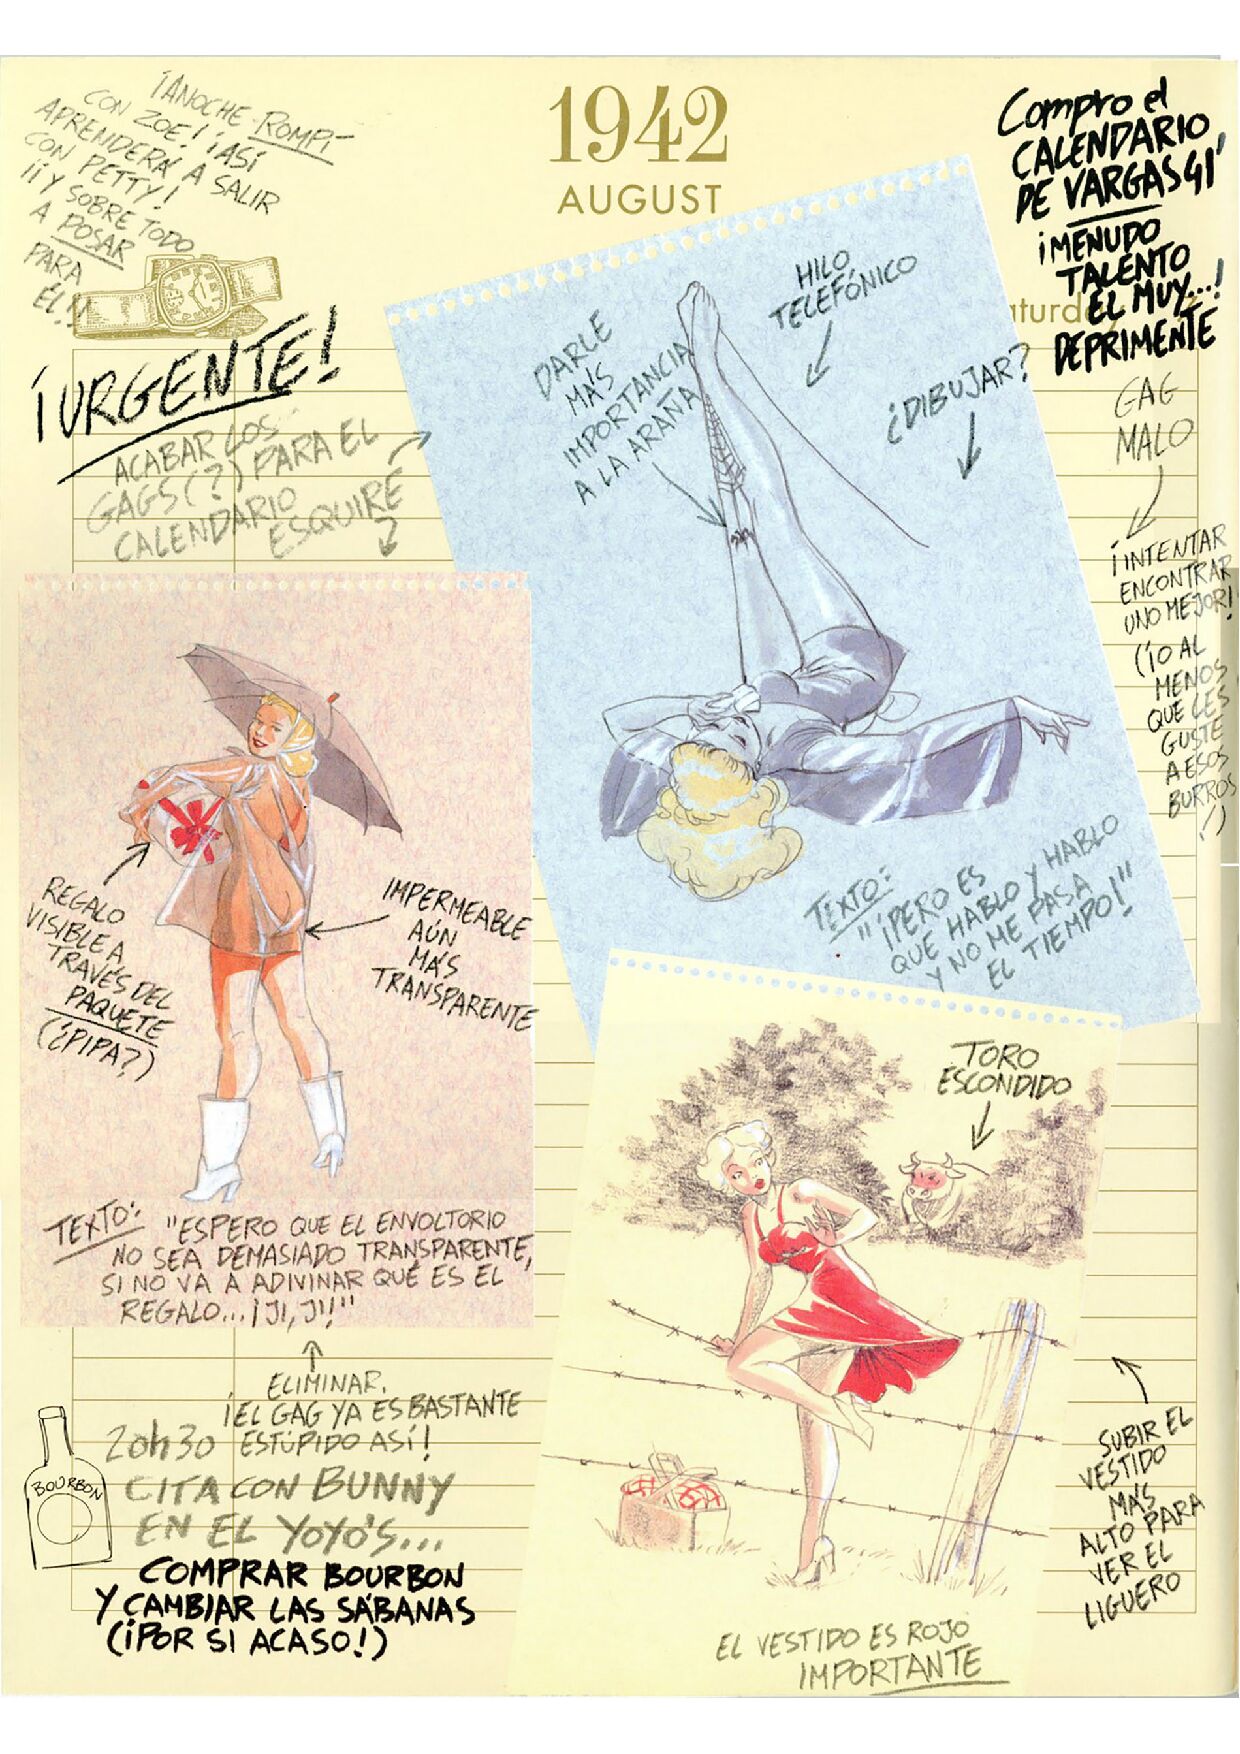 1942
AUGUST
¡ANOCHE ROMPÍ
CON ZOE! ¡ASÍ
APRENDERÁ A SALIR
CON PETTY!
¡¡Y SOBRE TODO
A POSAR
PARA
ÉL!!
Compro el
CALENDARIO
DE VARGAS 41
¡MENUDO
TALENTO
EL MUY...!
DEPRIMENTE
aturday
¡URGENTE!
ACABAR LOS
GAGS (?) PARA EL
CALENDARIO
ESQUIRE
DARLE
MÁS
IMPORTANCIA
A LA ARAÑA
HILO
TELEFÓNICO
¿DIBUJAR?
GAG
MALO
¡INTENTAR
ENCONTRAR
UNO MEJOR!
(¡O AL
MENOS
QUE LES
GUSTE
A ESOS
BURROS
!)
TEXTO:
"¡PERO ES
QUE HABLO Y HABLO
Y NO ME PASA
EL TIEMPO!"
REGALO
VISIBLE A
TRAVÉS DEL
PAQUETE
(¿PIPA?)
IMPERMEABLE
AÚN
MÁS
TRANSPARENTE
TEXTO: "ESPERO QUE EL ENVOLTORIO
NO SEA DEMASIADO TRANSPARENTE,
SI NO VA A ADIVINAR QUÉ ES EL
REGALO... ¡JI, JI!"
ELIMINAR.
¡EL GAG YA ES BASTANTE
ESTÚPIDO ASÍ!
20h30
CITA CON BUNNY
EN EL YOYO'S...
BOURBON
COMPRAR BOURBON
Y CAMBIAR LAS SÁBANAS
(¡POR SI ACASO!)
TORO
ESCONDIDO
SUBIR EL
VESTIDO
MÁS
ALTO PARA
VER EL
LIGUERO
EL VESTIDO ES ROJO
IMPORTANTE